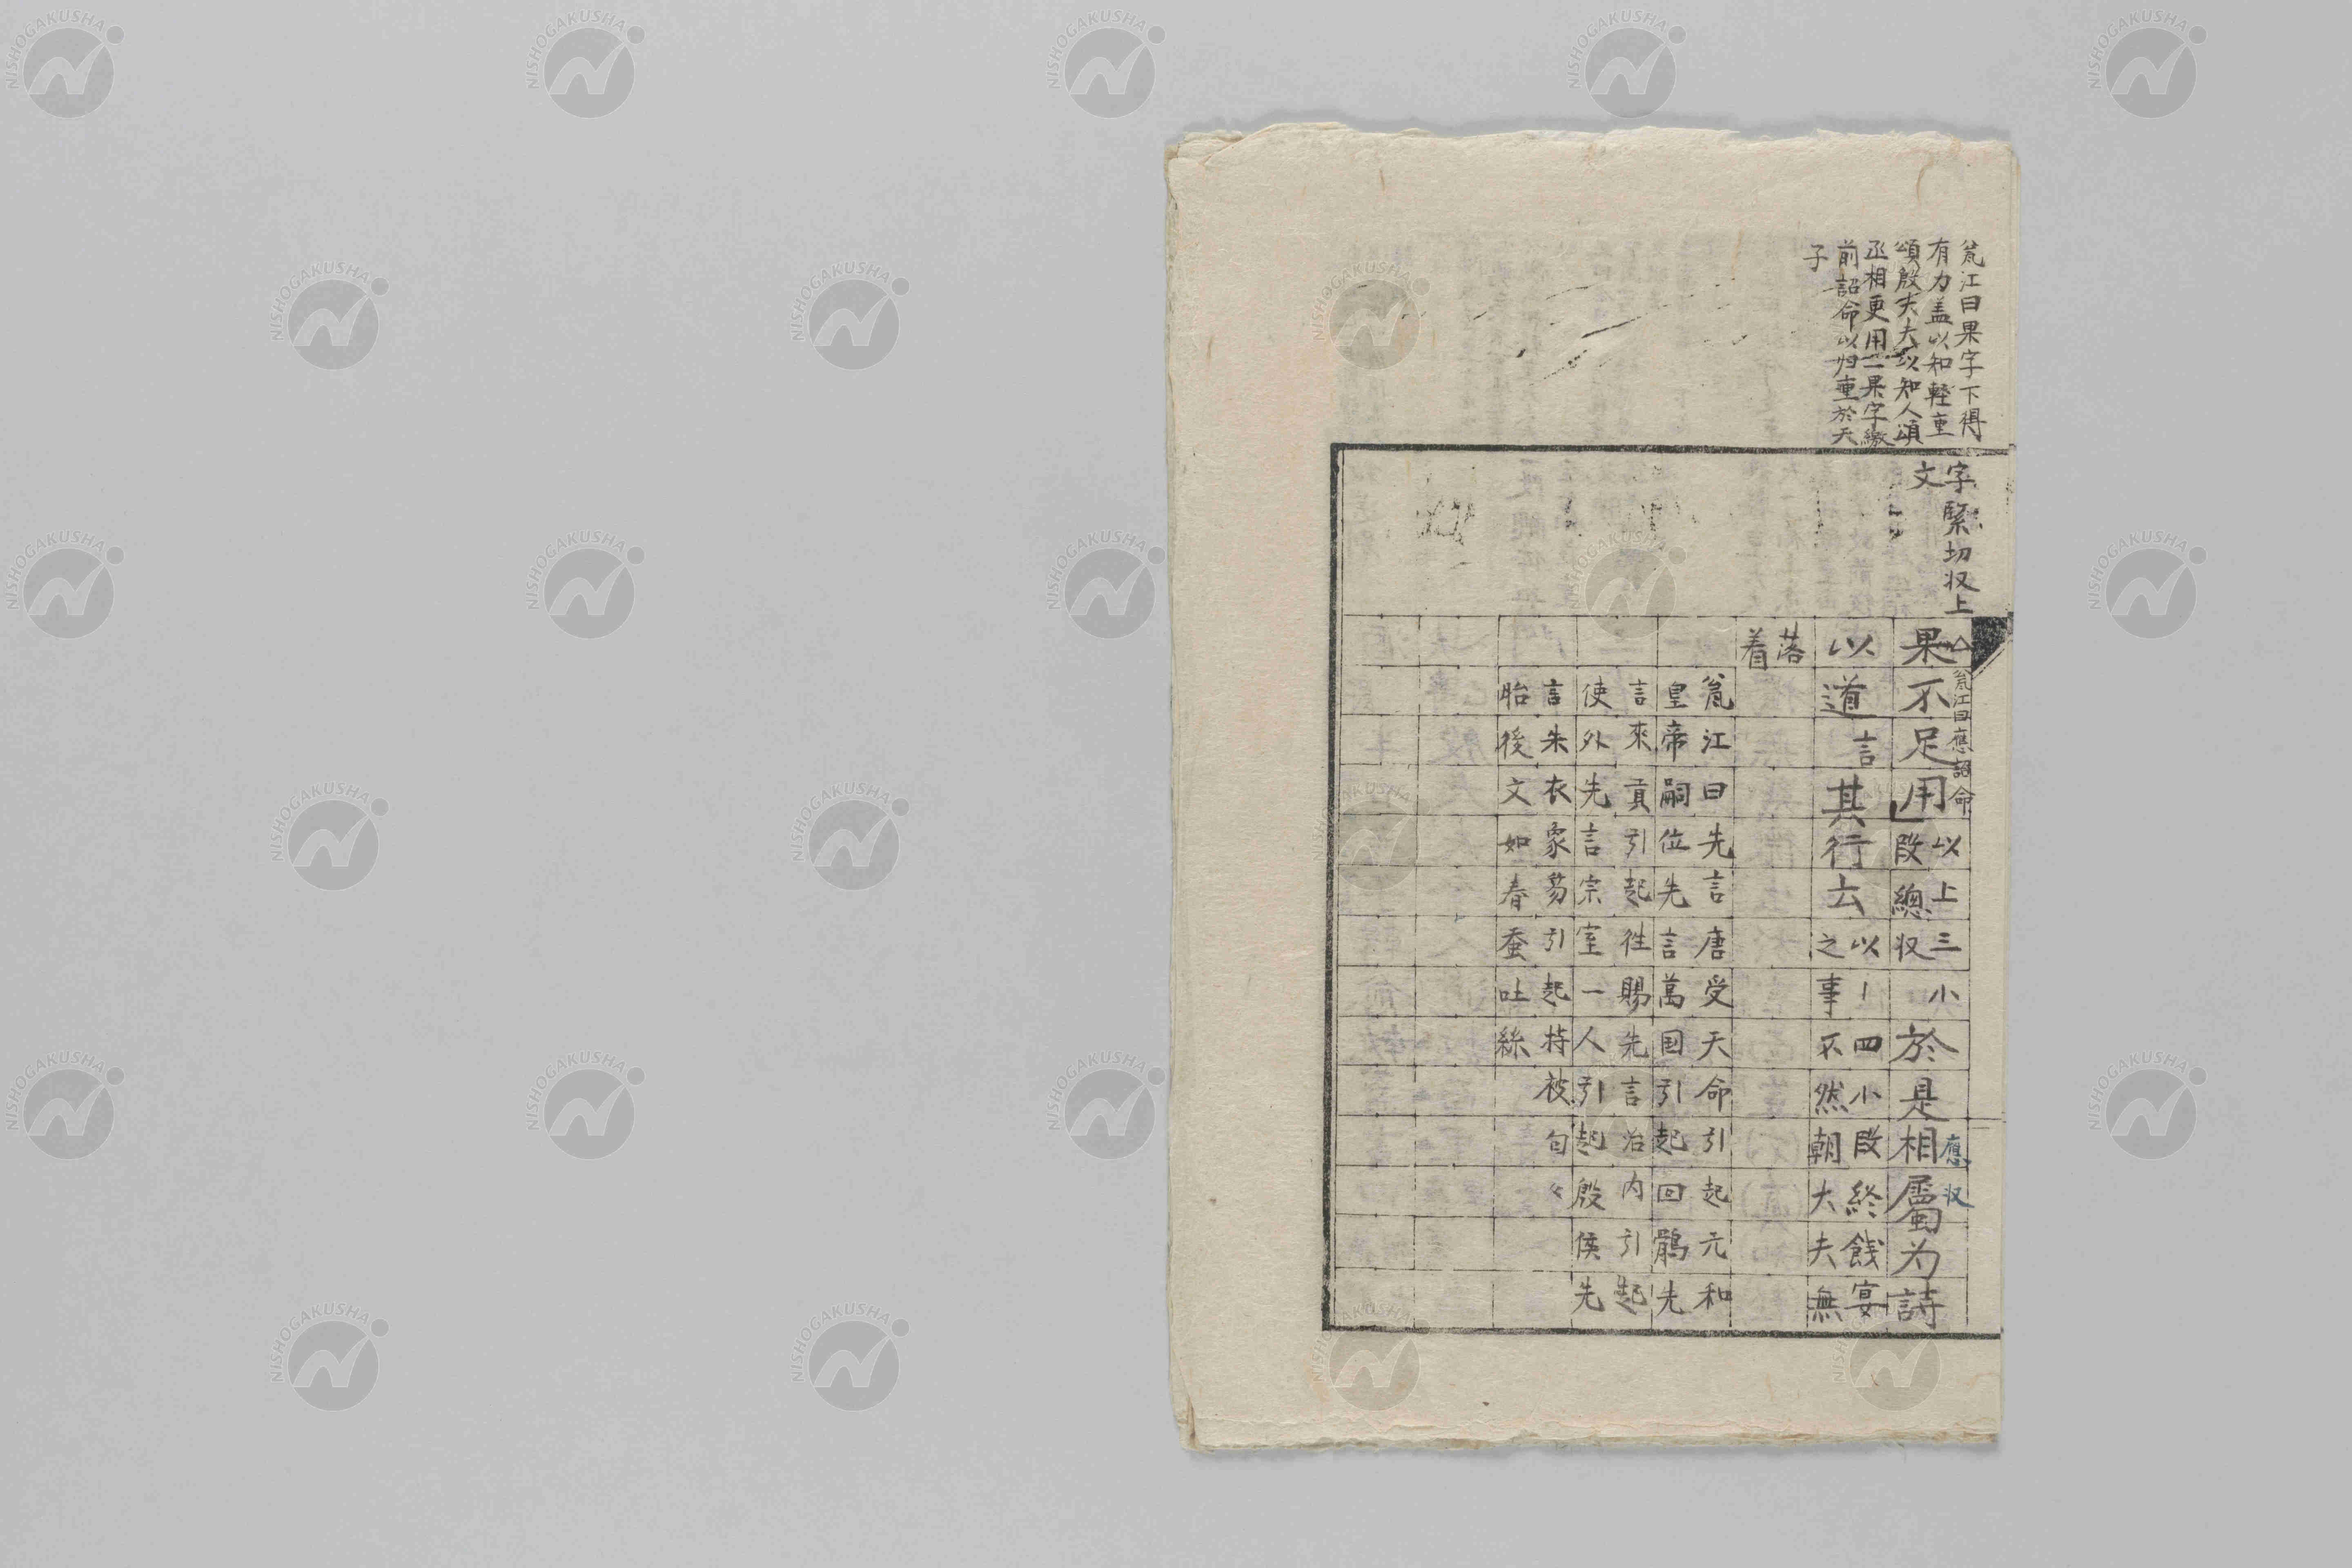 瓮江曰果字下得
有力盖以知輕重
頌殷大夫以知人頌
丞相更用一果字繳
前詔命以归重於天
子
字緊切収上
文
果不足用
瓮江曰應詔命
以上三小
段總収
於是相屬为詩
應収
以道
言
其行云
以上四小段終餞宴
之事不然朝大夫無
落
着
瓮江曰先言唐受天命引起元和
皇帝嗣位先言萬囯引起回鶻先
言來貢引起徃賜先言治内引起
使外先言宗室一人引起殷侯先
言朱衣象笏引起持被匂々
胎後文如春蚕吐絲
NISHOGAKUSHA